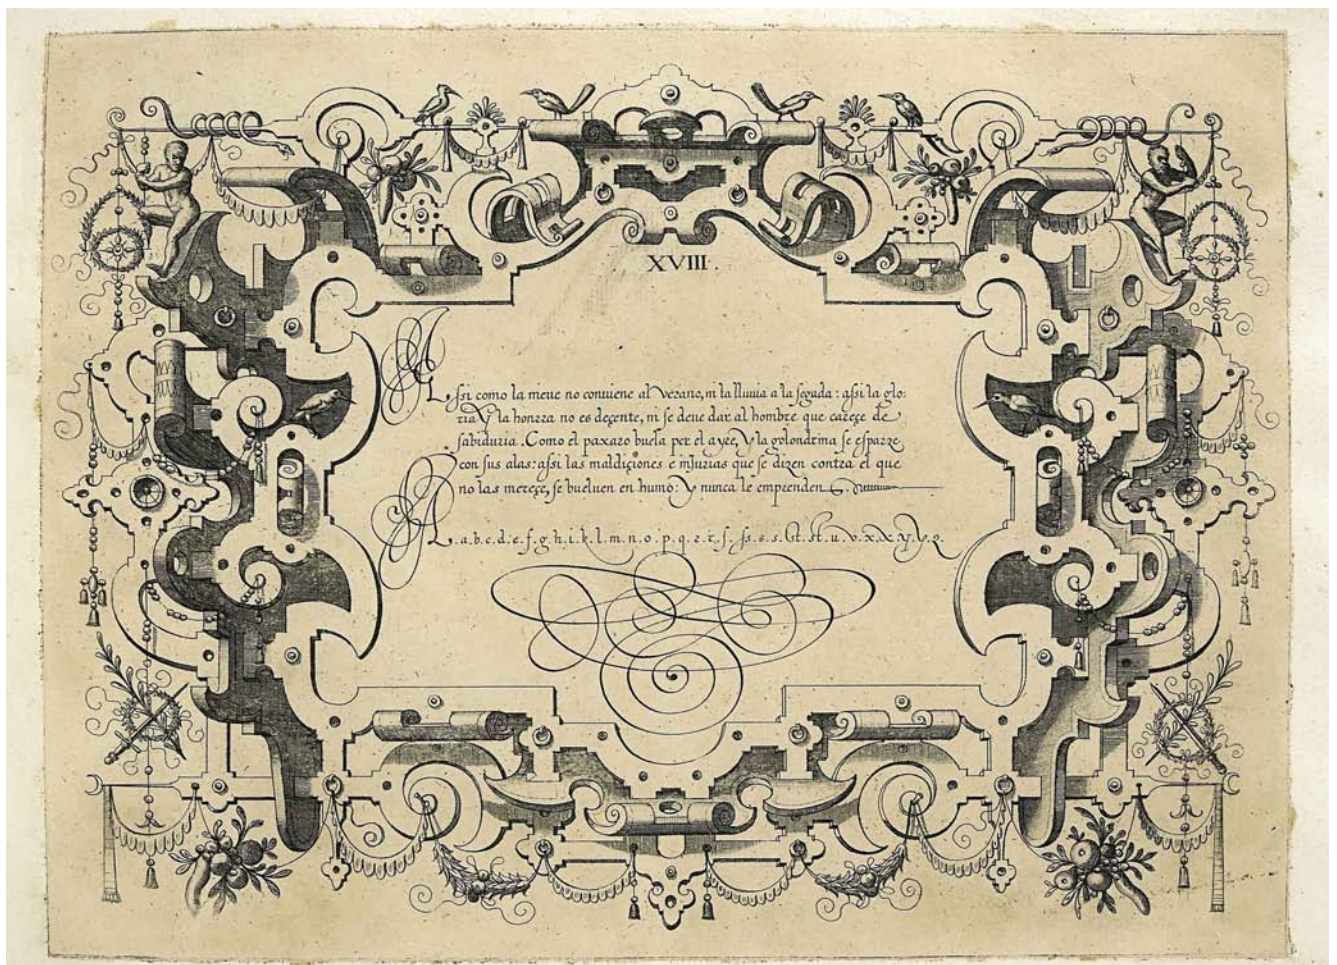 XVIII.
Assi como la nieue no conuiene al Verano, ni la lluuia a la segada: assi la glo:
ria Y la honrra no es deçente, ni se deue dar al hombre que careçe de
sabiduria. Como el paxaro buela per el ayre, Y la golondrina se esparze
con sus alas: assi las maldiçiones e injurias que se dizen contra el que
no las mereçe, se bueluen en humo: Y nunca le emprenden
A.a.b.c.d.e.f.g.h.i.k.l.m.n.o.p.q.r.r.s.ss.s.s.st.st.u.v.x.x.y.z.z.